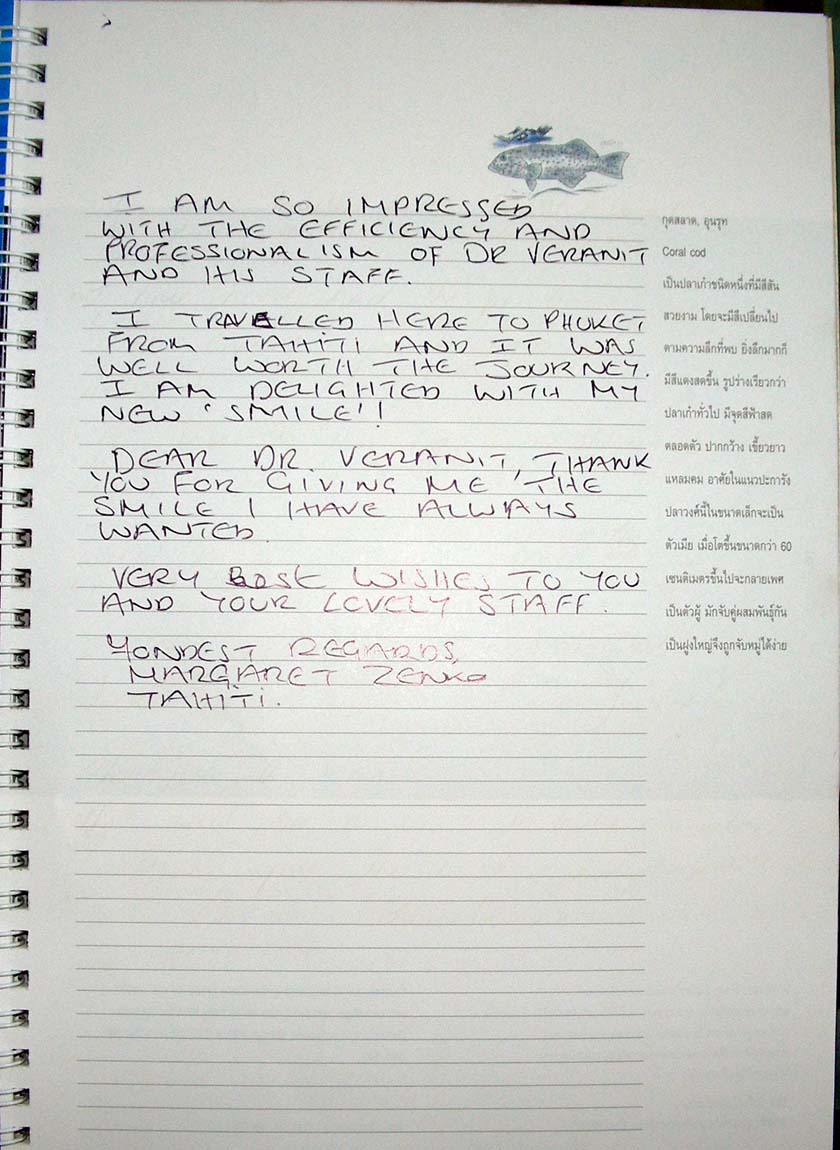 I AM SO IMPRESSED
WITH THE EFFICIENCY AND
PROFESSIONALISM OF DR VERANIT
AND HIS STAFF.
I TRAVELLED HERE TO PHUKET
FROM TAHITI AND IT WAS
WELL WORTH THE JOURNEY.
I AM DELIGHTED WITH MY
NEW 'SMILE'!
DEAR DR. VERANIT, THANK
YOU FOR GIVING ME THE
SMILE I HAVE ALWAYS
WANTED.
VERY BEST WISHES TO YOU
AND YOUR LOVELY STAFF.
REGARDS,
MARGARET ZENKO
TAHITI.
กุดสลาด, อุนรุท
Coral cod
เป็นปลาเก๋าชนิดหนึ่งที่มีสีสัน
สวยงาม โดยจะมีสีเปลี่ยนไป
ตามความลึกที่พบ ยิ่งลึกมากก็
มีสีแดงสดขึ้น รูปร่างเรียวกว่า
ปลาเก๋าทั่วไป มีจุดสีฟ้าสด
ตลอดตัว ปากกว้าง เขี้ยวยาว
แหลมคม อาศัยในแนวปะการัง
ปลาวงศ์นี้ในขนาดเล็กจะเป็น
ตัวเมีย เมื่อโตขึ้นขนาดกว่า 60
เซนติเมตรขึ้นไปจะกลายเพศ
เป็นตัวผู้ มักจับคู่ผสมพันธุ์กัน
เป็นฝูงใหญ่จึงถูกจับหมู่ได้ง่าย